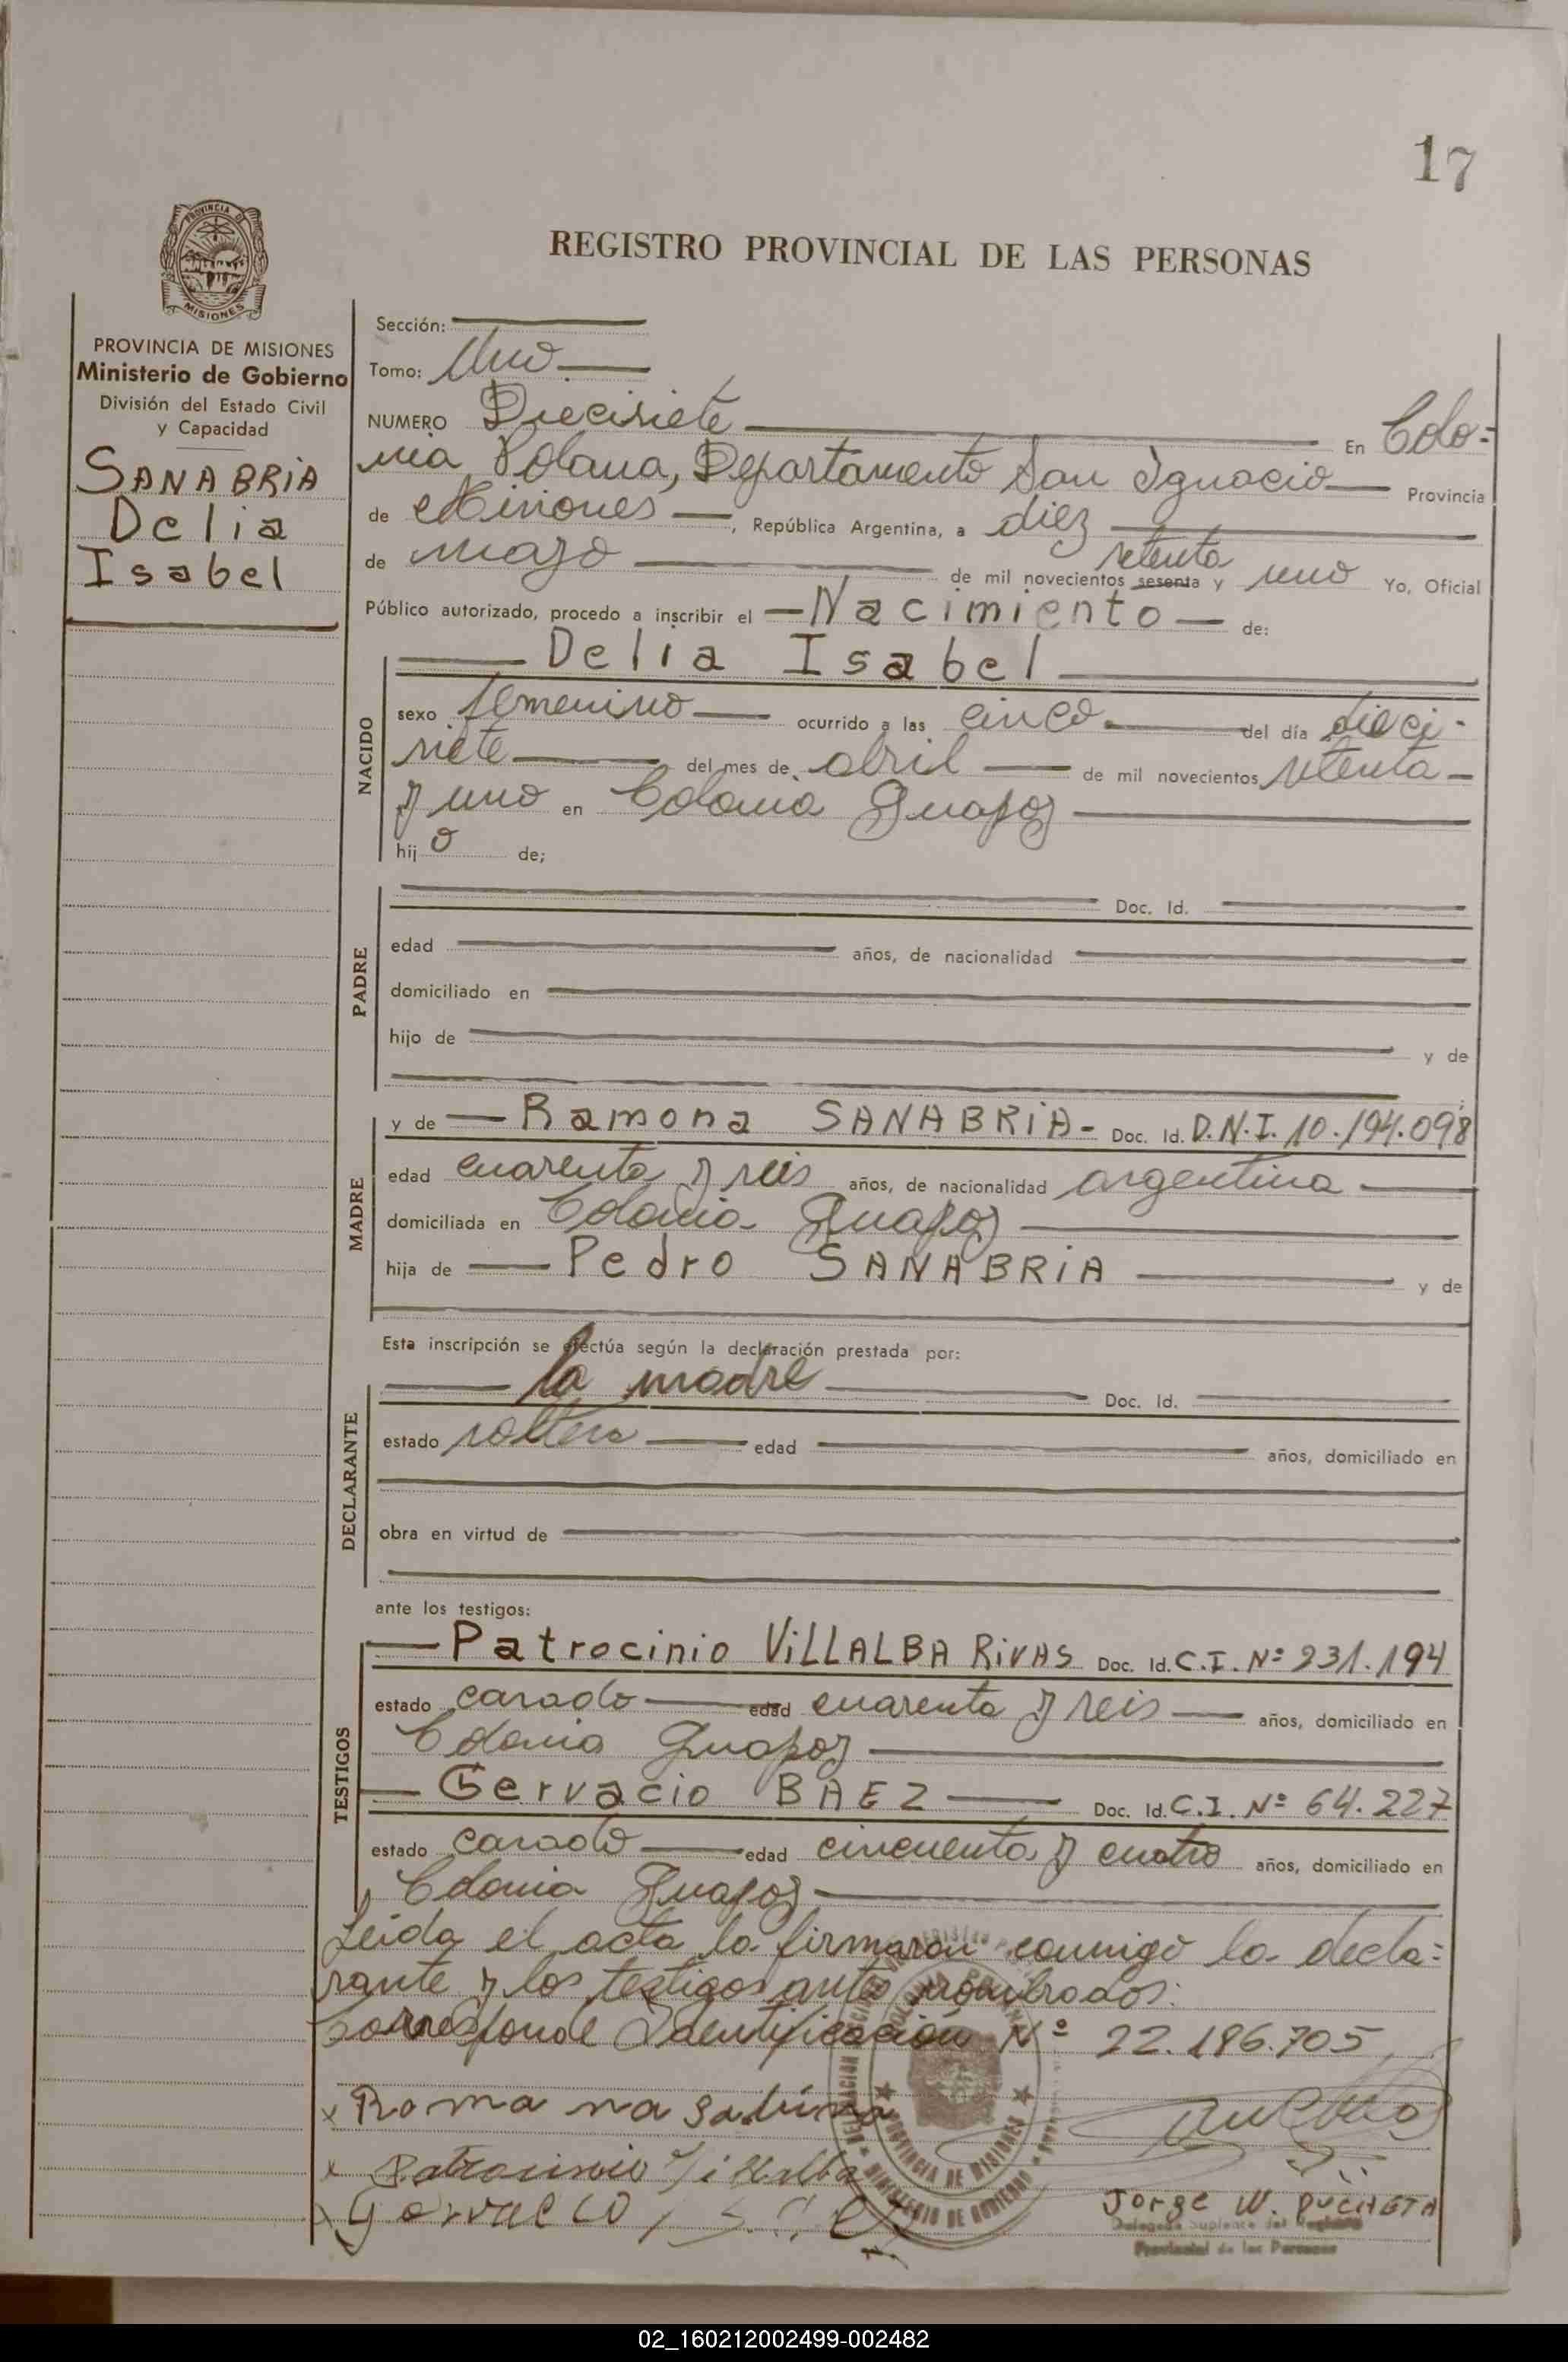 17
PROVINCIA DE
MISIONES
REGISTRO PROVINCIAL DE LAS PERSONAS
PROVINCIA DE MISIONES
Ministerio de Gobierno
División del Estado Civil
y Capacidad
SANABRIA
Delia
Isabel
Sección:
Tomo: Uno
NUMERO Diecisiete En Colo=
nia Polana, Departamento San Ignacio Provincia
de Misiones, República Argentina, a diez
de mayo de mil novecientos sesenta setenta y uno Yo, Oficial
Público autorizado, procedo a inscribir el Nacimiento de:
NACIDO
Delia Isabel
sexo femenino ocurrido a las cinco del día dieci-
siete del mes de abril de mil novecientos setenta
y uno en Colonia Guapoy
hij o de;
PADRE
Doc. Id.
edad años, de nacionalidad
domiciliado en
hijo de y de
MADRE
y de Ramona SANABRIA- Doc. Id. D.N.I. 10.194.098
edad cuarenta y seis años, de nacionalidad argentina
domiciliada en Colonia Guapoy
hija de Pedro SANABRIA y de
Esta inscripción se efectúa según la declaración prestada por:
DECLARANTE
la madre Doc. Id.
estado soltera edad años, domiciliado en
obra en virtud de
ante los testigos:
TESTIGOS
Patrocinio VILLALBA RIVAS Doc. Id. C.I. Nº 231.194
estado casado edad cuarenta y seis años, domiciliado en
Colonia Guapoy
Gervacio BAEZ Doc. Id. C.I. Nº 64.227
estado casado edad cincuenta y cuatro años, domiciliado en
Colonia Guapoy
Leída el acta la firmaron conmigo la decla=
rante y los testigos ante nombrados.
Corresponde Identificación Nº 22.186.705
x Roma na
x Patrocinio Villalba
Jorge W. PUCHETA
Delegado Suplente del Registro
Provincial de las Personas
PROVINCIA DE MISIONES
MINISTERIO DE GOBIERNO
02_160212002499-002482